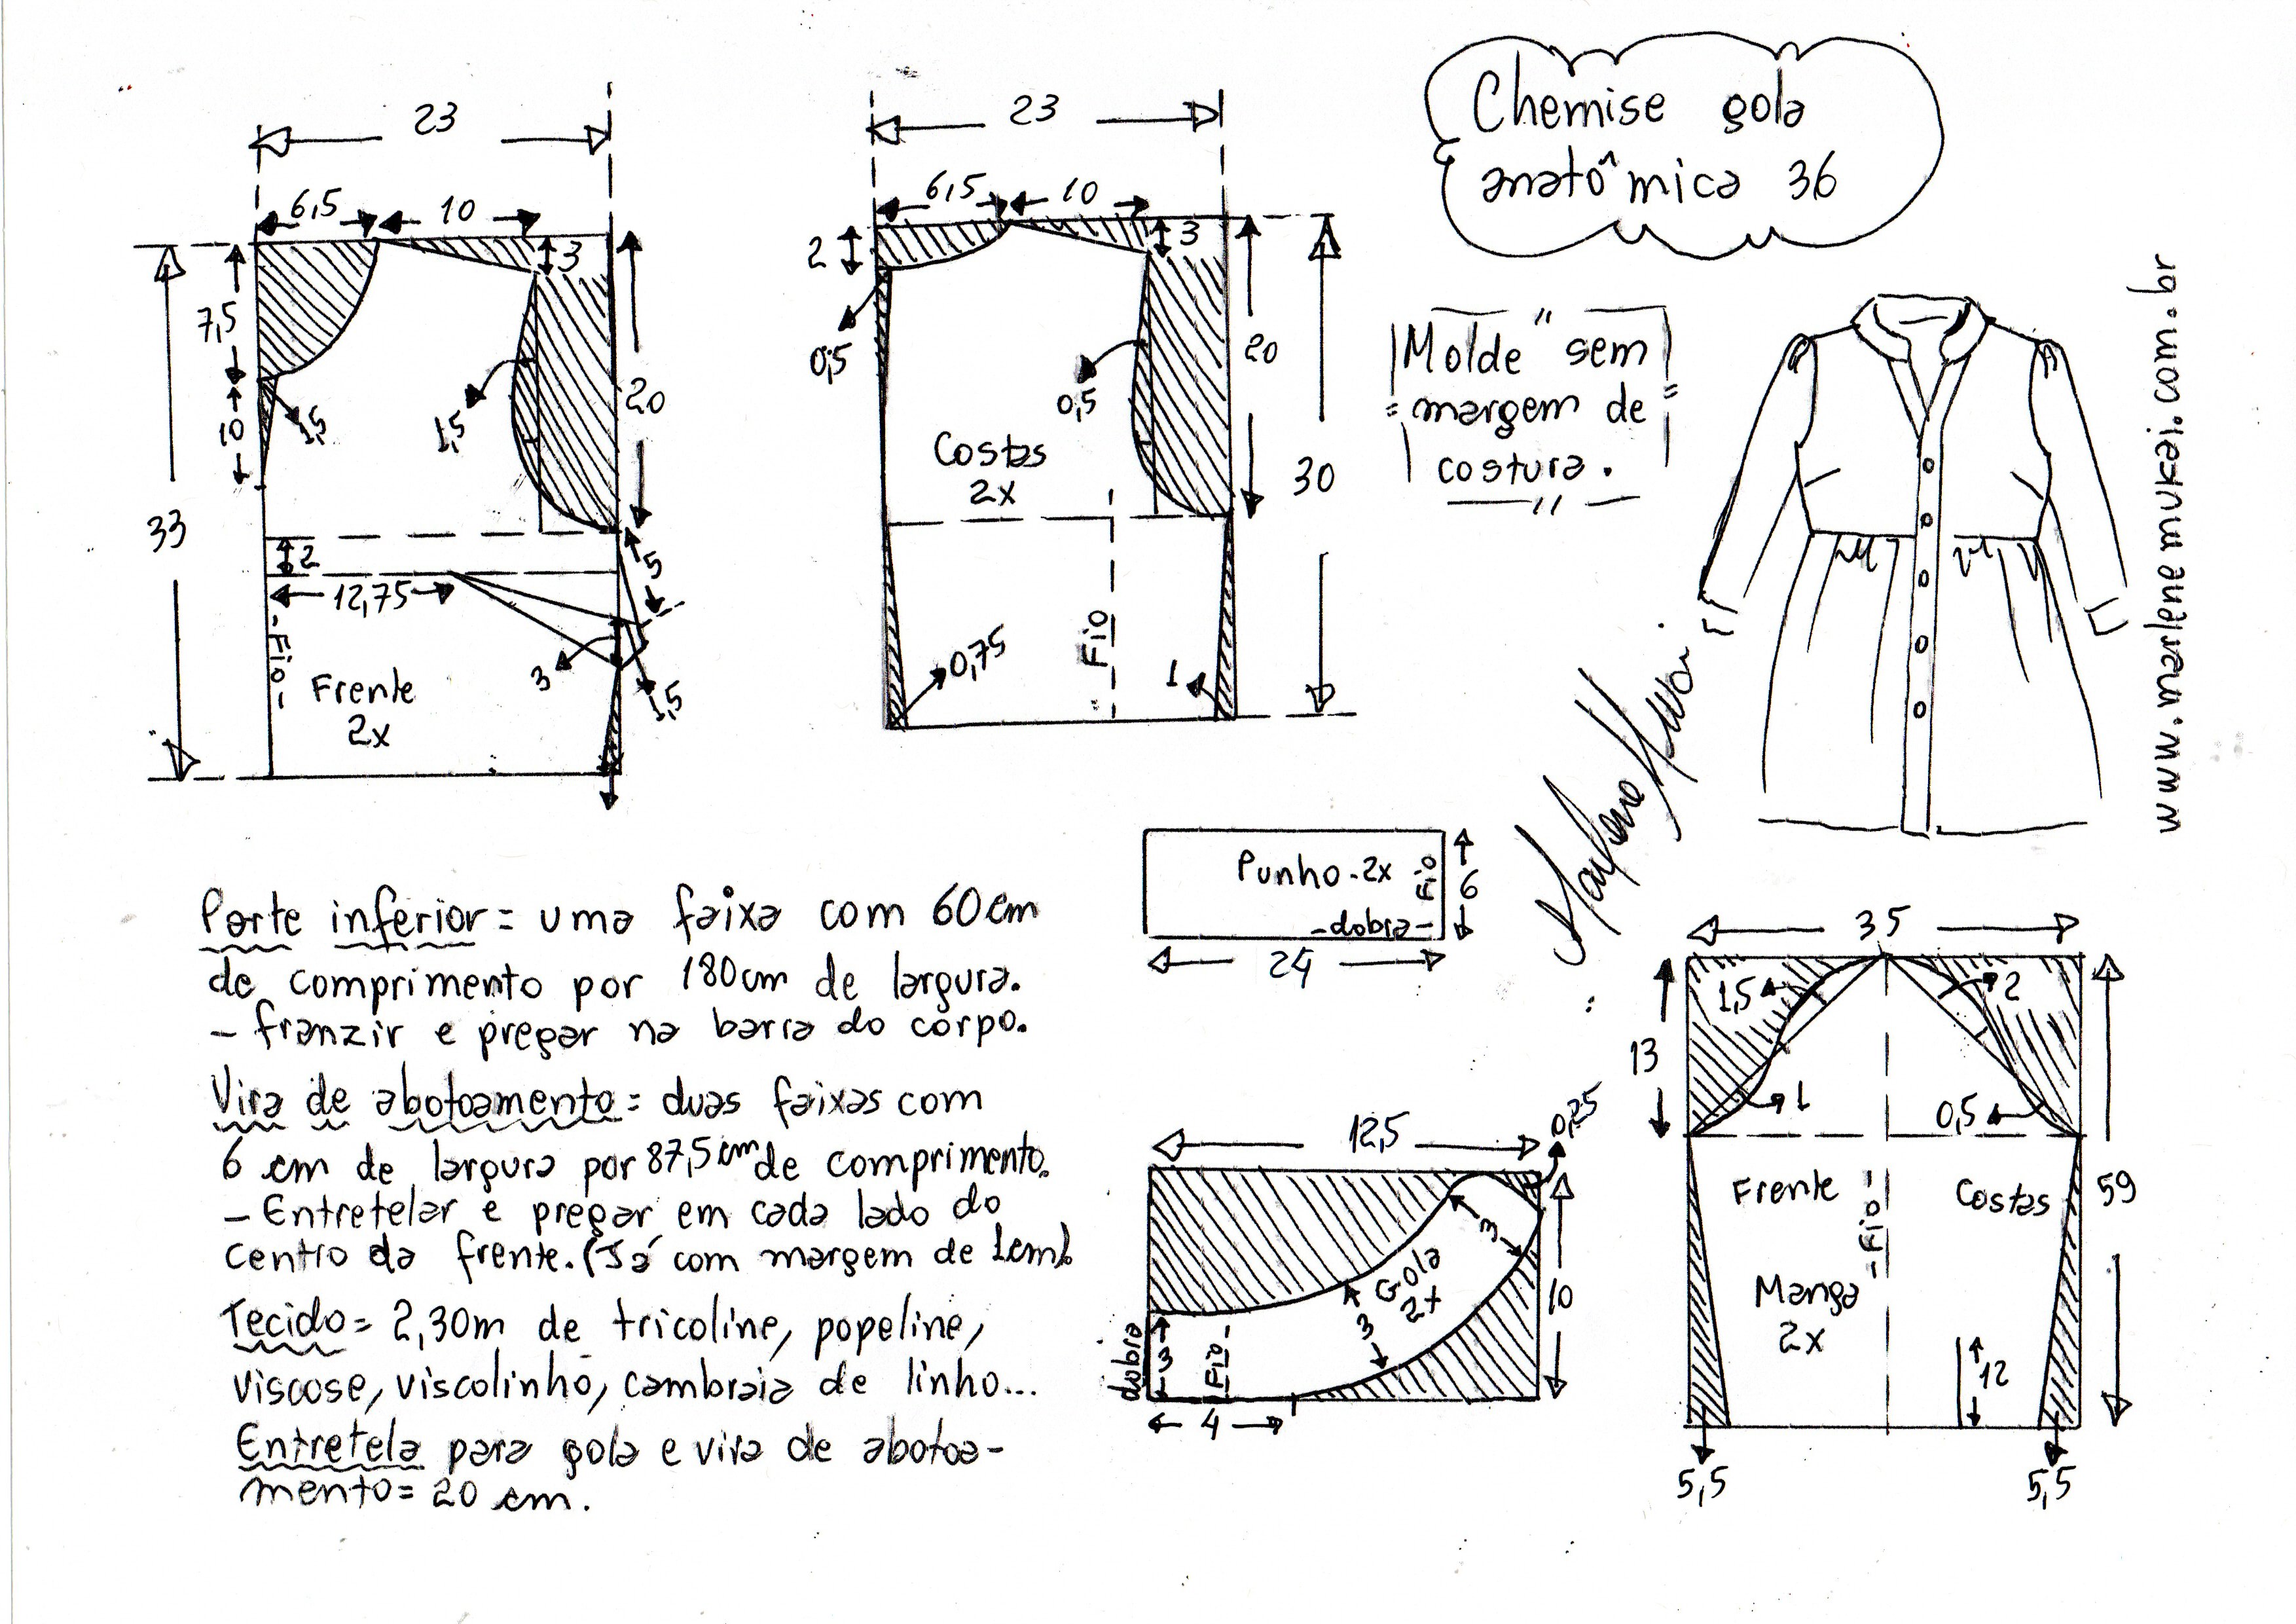 Chemise gola
anatômica 36
"Molde" sem
margem de
costura.
www.marlenemukai.com.br
Marlene Mukai
23
6,5
10
3
7,5
10
1,5
1,5
20
33
2
12,75
5
3
1,5
-Fio-
Frente
2x
23
6,5
10
2
3
0,5
0,5
20
30
Costas
2x
Fio
0,75
1
Punho-2x
Fio
6
-dobra-
24
Parte inferior = uma faixa com 60cm
de comprimento por 180cm de largura.
- franzir e pregar na barra do corpo.
Vira de abotoamento = duas faixas com
6 cm de largura por 87,5cm de comprimento.
- Entretelar e pregar em cada lado do
centro da frente. (Já com margem de 1cm).
Tecido = 2,30m de tricoline, popeline,
viscose, viscolinho, cambraia de linho...
Entretela para gola e vira de abotoa-
mento = 20 cm.
12,5
0,25
3
Gola
2x
3
10
dobra
3
Fio-
4
35
1,5
2
13
1
0,5
Frente
-Fio-
Costas
59
Manga
2x
12
5,5
5,5